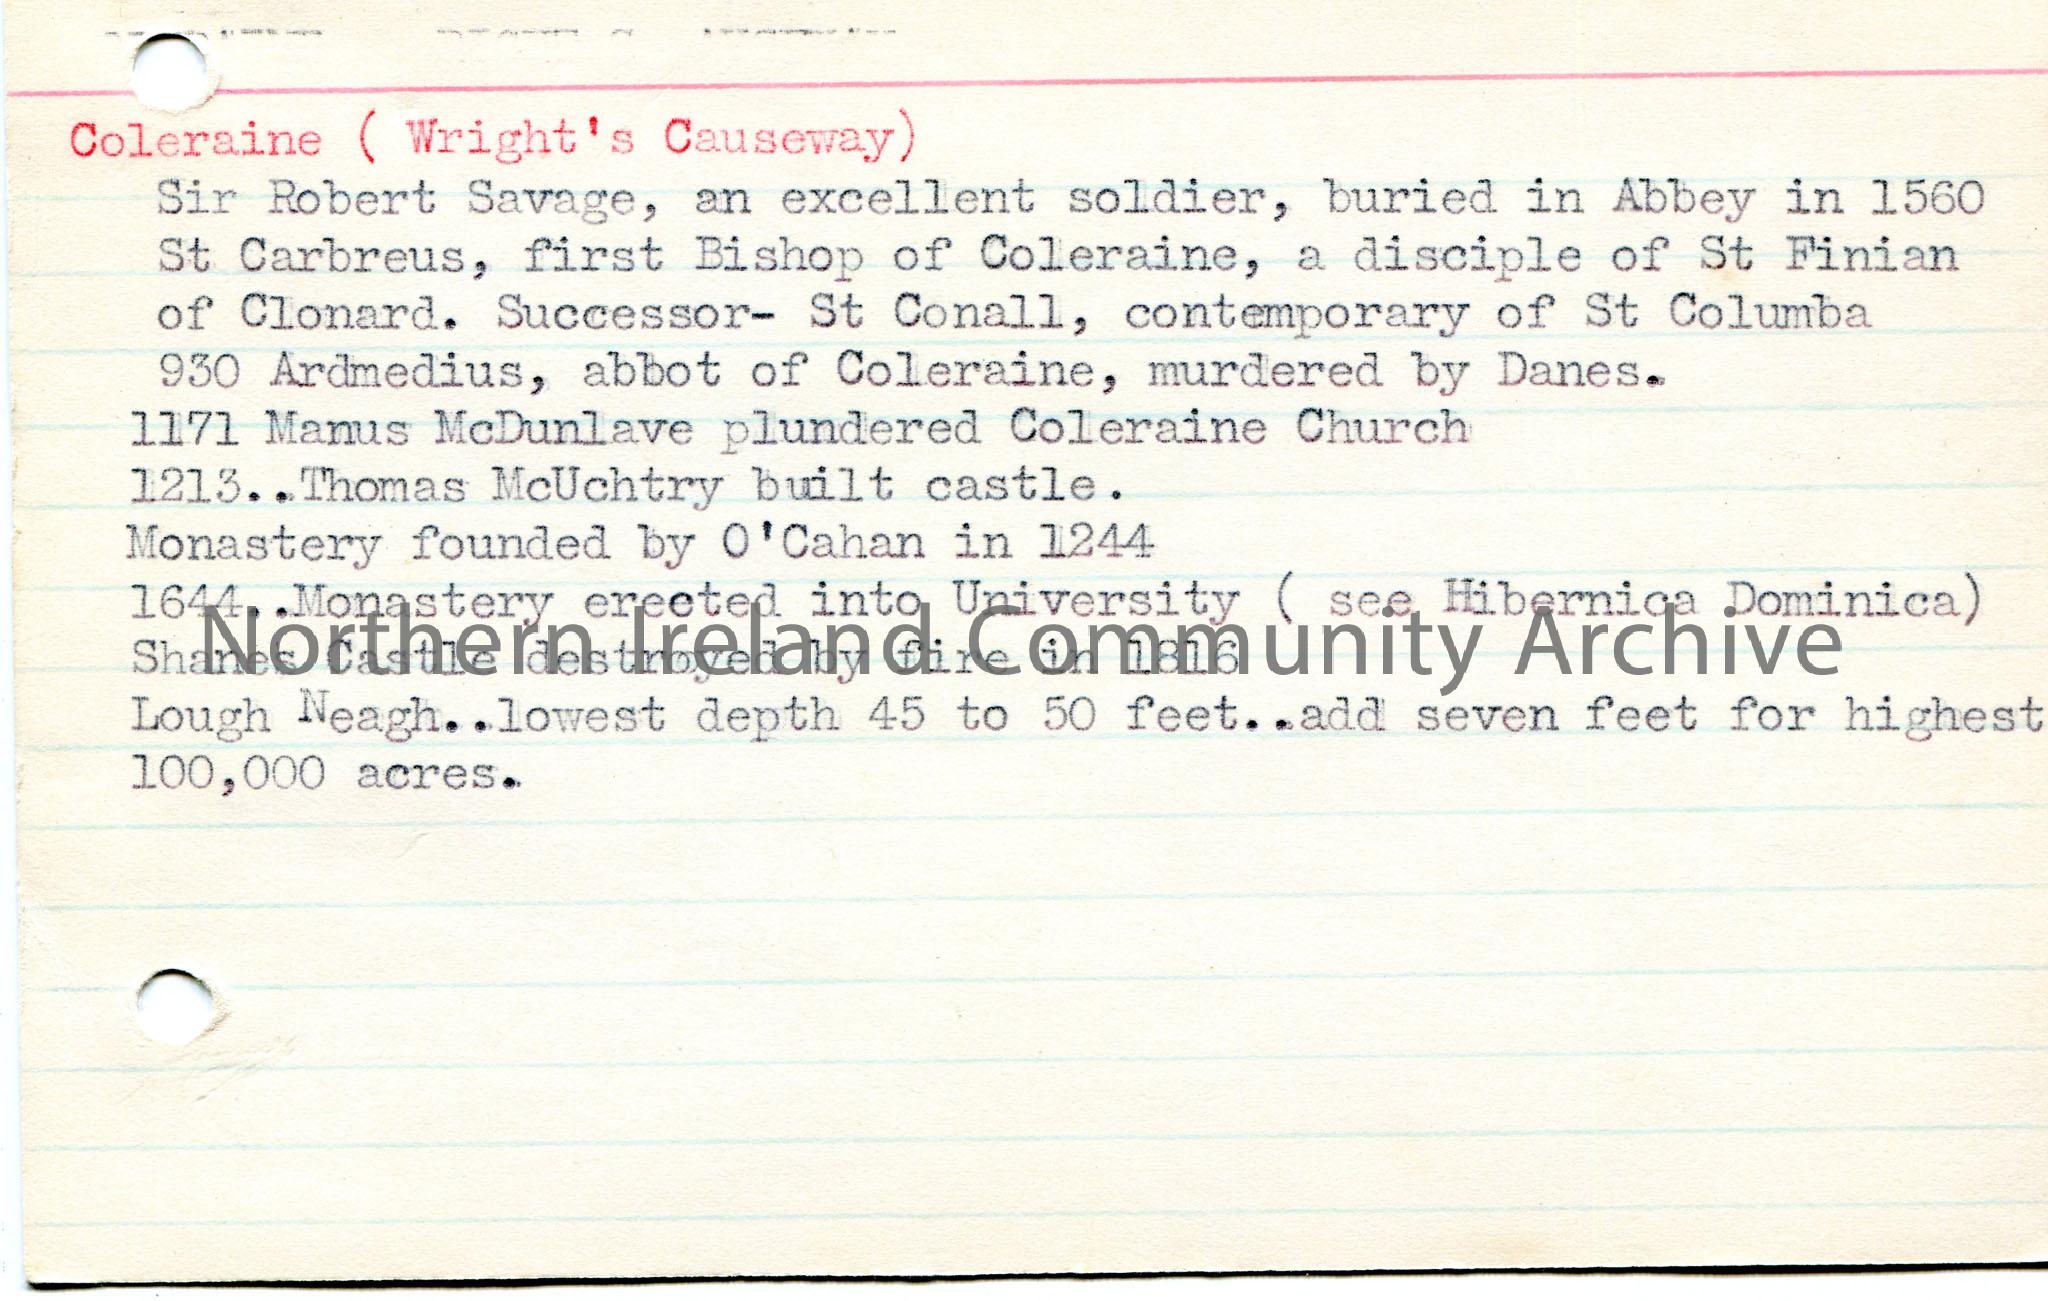 Coleraine ( Wright's Causeway)
Sir Robert Savage, an excellent soldier, buried in Abbey in 1560
St Carbreus, first Bishop of Coleraine, a disciple of St Finian
of Clonard. Successor- St Conall, contemporary of St Columba
930 Ardmedius, abbot of Coleraine, murdered by Danes.
1171 Manus McDunlave plundered Coleraine Church
1213..Thomas McUchtry built castle.
Monastery founded by O'Cahan in 1244
1644..Monastery erected into University ( see Hibernica Dominica)
Northern Ireland Community Archive
Shanes Castle destroyed by fire in 1816
Lough Neagh..lowest depth 45 to 50 feet..add seven feet for highest
100,000 acres.